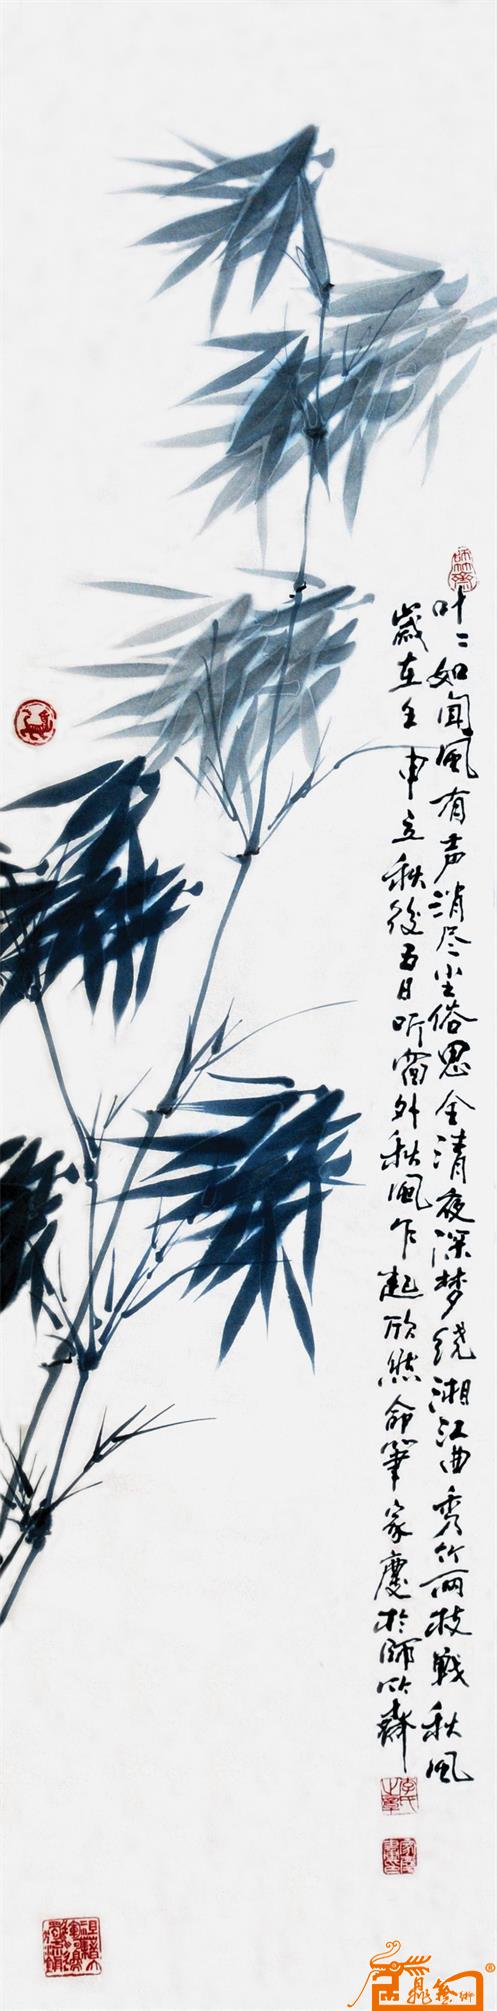 叶二如闻风有声消尽尘俗思全清夜深梦绕湘江曲秀竹两枝战秋风
岁在壬申立秋後五日听窗外秋风乍起欣然命笔家庆於师竹斋
师竹斋